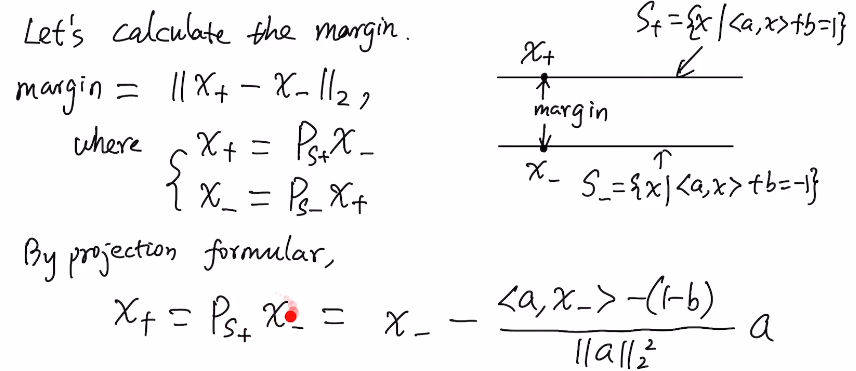 Let's calculate the margin.
margin = ||x₊ − x₋||₂,
where { x₊ = P_{S₊} x₋
x₋ = P_{S₋} x₊
S₊ = {x | <a,x>+b=1}
x₊
margin
x₋
S₋ = {x | <a,x>+b=-1}
By projection formular,
x₊ = P_{S₊} x₋ = x₋ − \frac{<a, x₋> −(1−b)}{||a||₂²} a